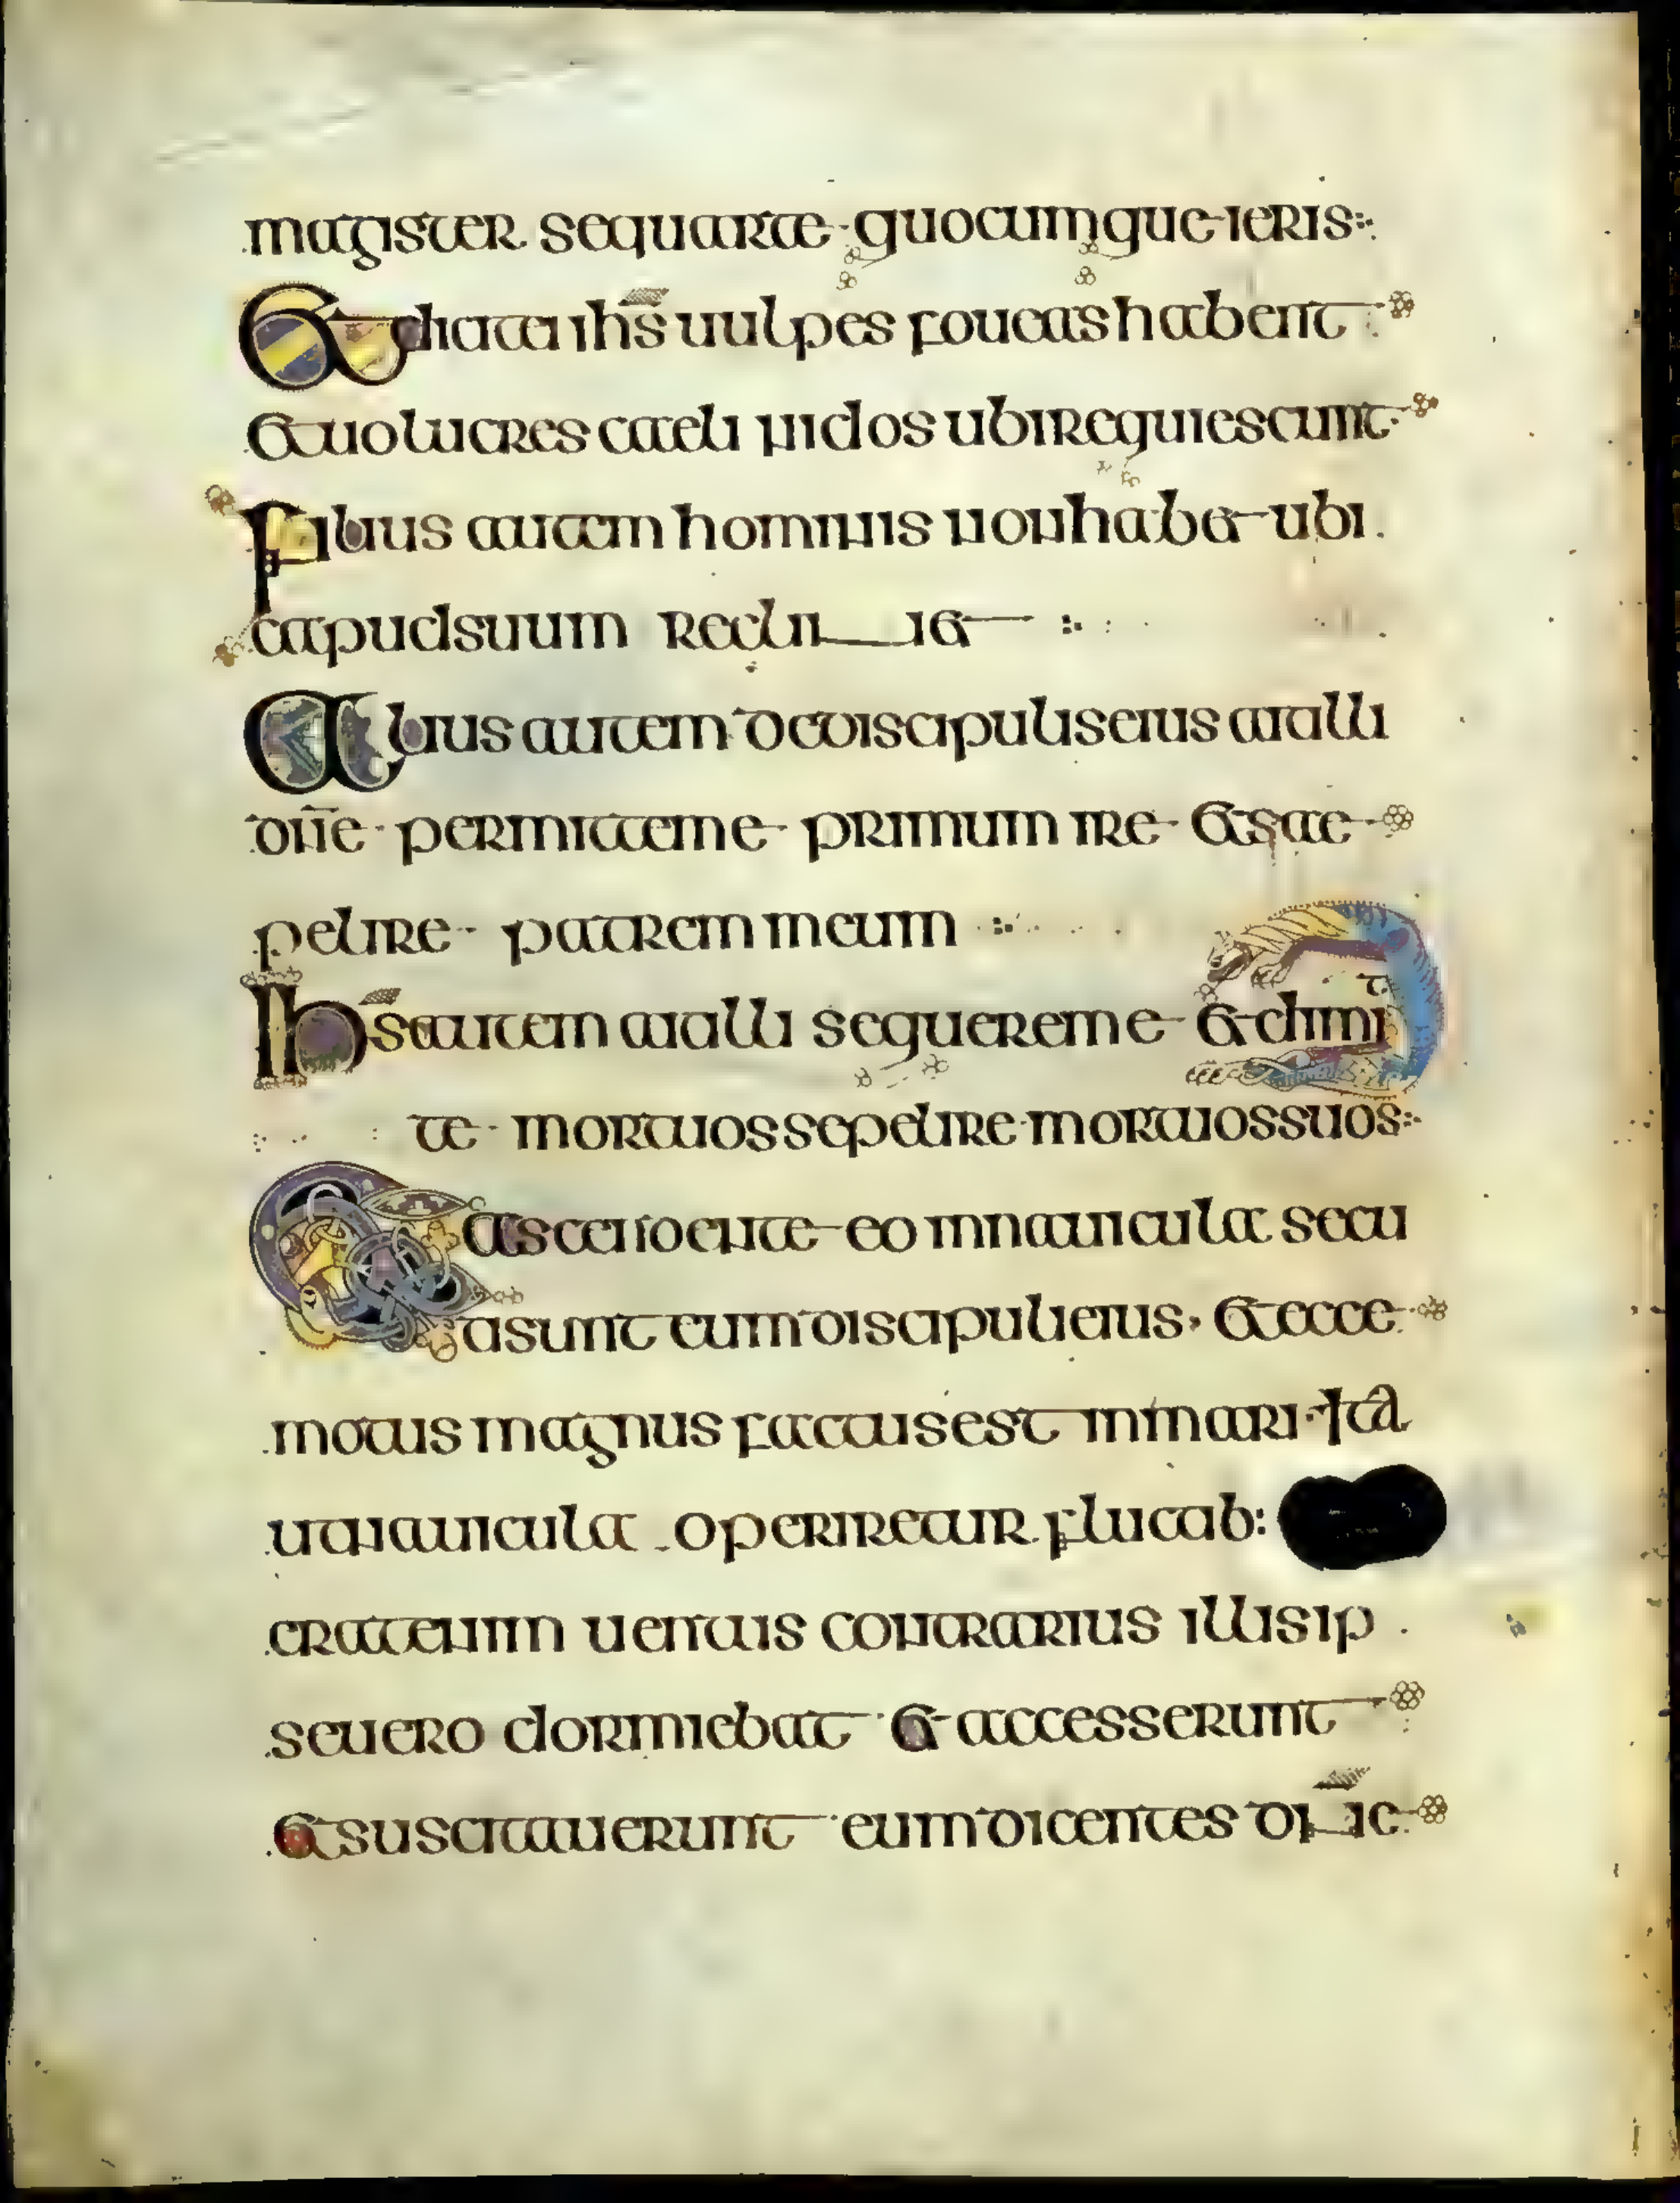 magister sequar te quocumque ieris
Et dicit ei ihs uulpes foueas habent
et uolucres caeli nidos ubi requiescunt
Filius autem hominis non habet ubi
capud suum reclinet
Alius autem de discipulis eius ait illi
dne permitte me primum ire et sae
pelire patrem meum
Ihs autem ait illi sequere me et dimit
te mortuos sepelire mortuos suos
Et ascendente eo in nauicula secu
ti sunt eum discipuli eius et ecce
motus magnus factus est in mari ita
ut nauicula operiretur fluctib:
erat enim uentus contrarius illis ip
se uero dormiebat et accesserunt
et suscitauerunt eum dicentes